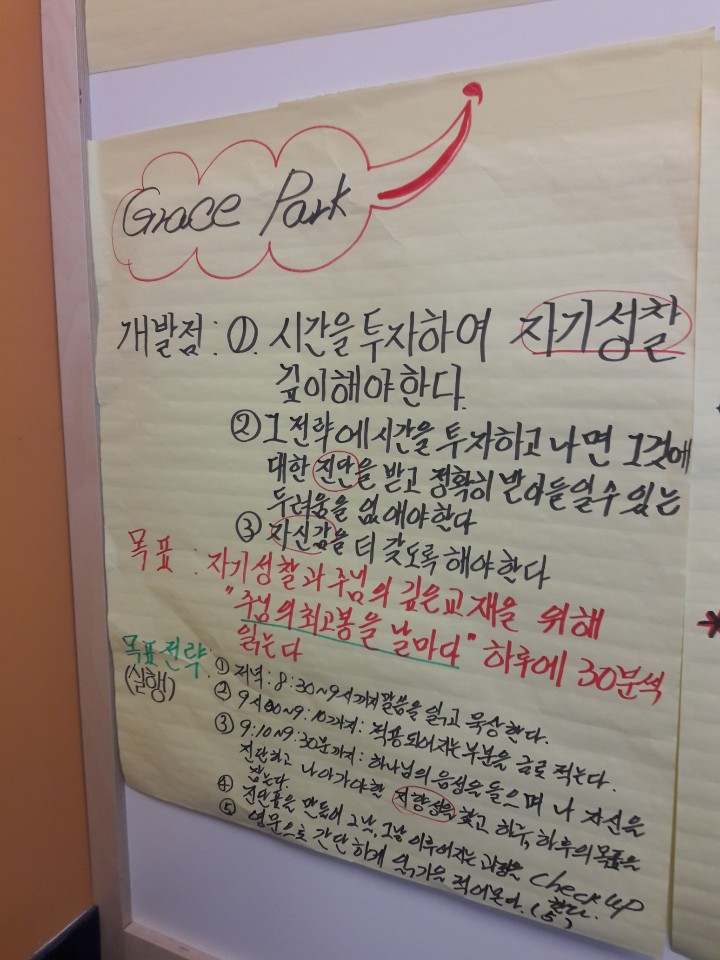 Grace Park
개발점 : ①. 시간을 투자하여 자기성찰
깊이해야한다.
② 그 전략에 시간을 투자하고 나면 그것에
대한 진단을 받고 정확히 받아들일수 있는
두려움을 없애야한다
③ 자신감을 더 갖도록 해야한다
목표 : 자기성찰과 주님의 깊은교재을 위해
"주님의최고봉을 날마다" 하루에 30분씩
읽는다
목표전략 : ① 저녁: 8:30~9시까지 말씀을 읽고 묵상한다.
(실행) ② 9시00~9:10까지: 적용되어지는부분을 글로 적는다.
③ 9:10~9:30분까지: 하나님의 음성을 들으며 나 자신을
진단하고 나아가야한 지향성을 찾고 하루, 하루의목표을
찾는다.
④ 진단표을 만들어 그날, 그날 이루어지는 과정을 check up
한다.
⑤ 영문으로 간단하게 일기을 적어본다. (5)